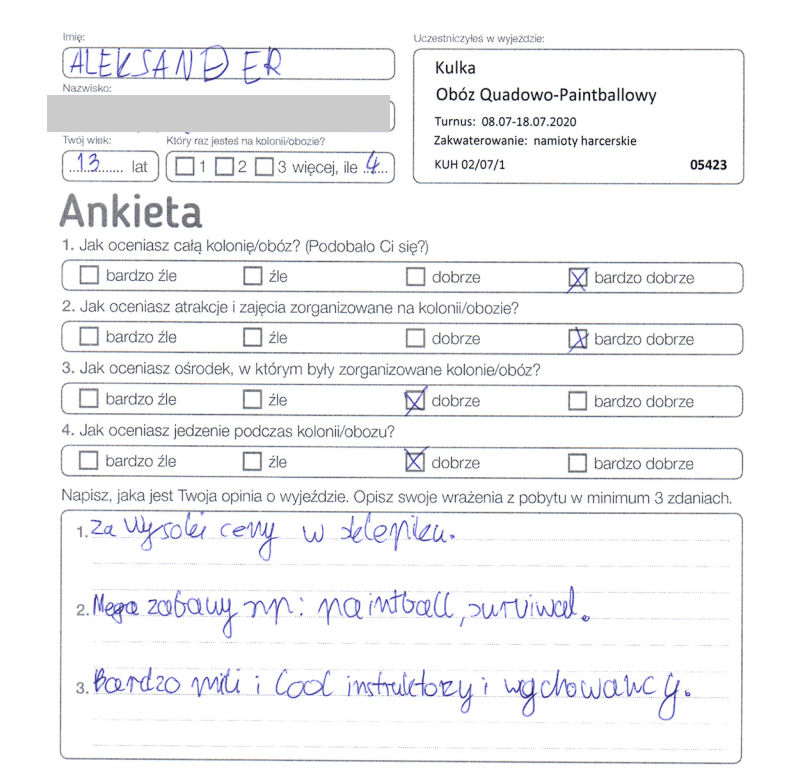 Imię:
ALEKSANDER
Nazwisko:
Twój wiek:
13 lat
Który raz jesteś na kolonii/obozie?
1 2 3 więcej, ile 4
Uczestniczyłeś w wyjeździe:
Kulka
Obóz Quadowo-Paintballowy
Turnus: 08.07-18.07.2020
Zakwaterowanie: namioty harcerskie
KUH 02/07/1 05423
Ankieta
1. Jak oceniasz całą kolonię/obóz? (Podobało Ci się?)
bardzo źle źle dobrze bardzo dobrze
2. Jak oceniasz atrakcje i zajęcia zorganizowane na kolonii/obozie?
bardzo źle źle dobrze bardzo dobrze
3. Jak oceniasz ośrodek, w którym były zorganizowane kolonie/obóz?
bardzo źle źle dobrze bardzo dobrze
4. Jak oceniasz jedzenie podczas kolonii/obozu?
bardzo źle źle dobrze bardzo dobrze
Napisz, jaka jest Twoja opinia o wyjeździe. Opisz swoje wrażenia z pobytu w minimum 3 zdaniach.
1. Za wysokie ceny w sklepiku.
2. Mega zabawy np: paintball, surviwal.
3. Bardzo mili i Cool instruktorzy i wychowawcy.